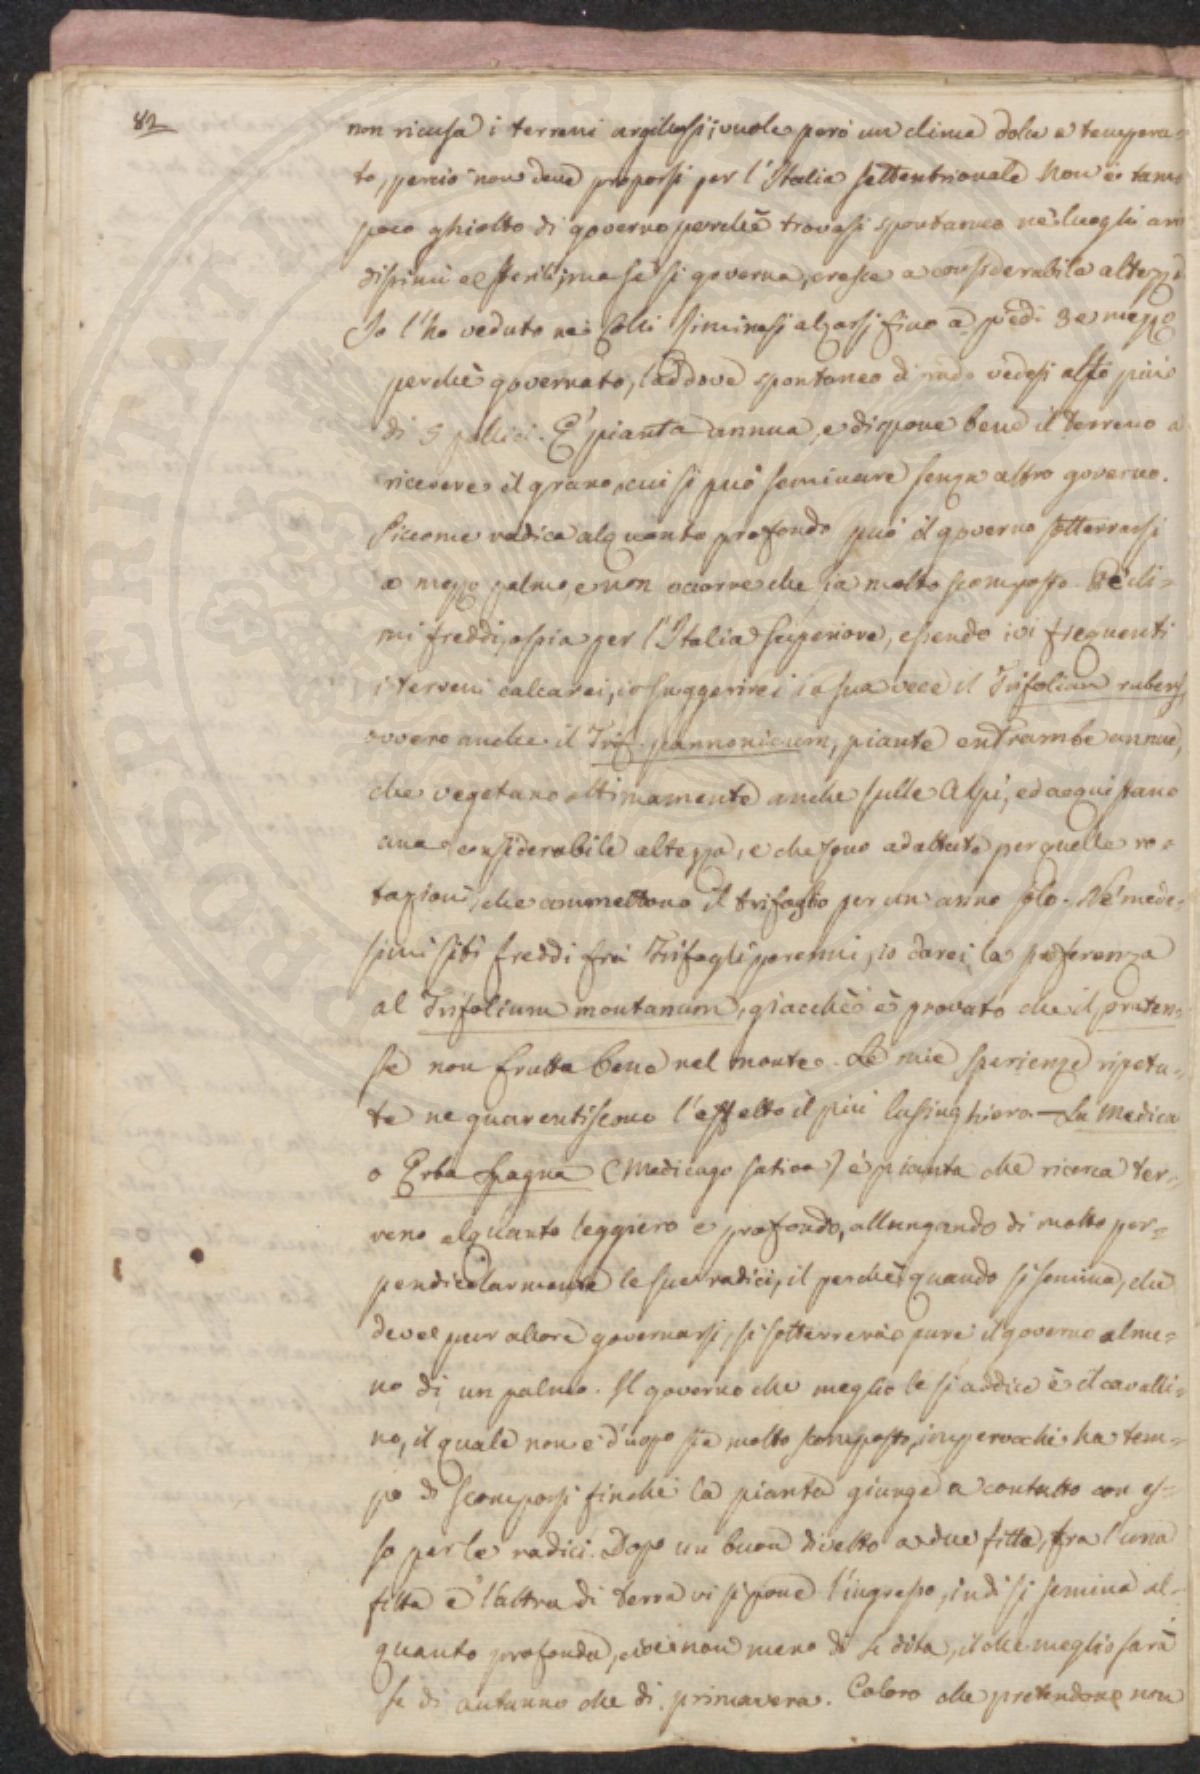 82
non ricusa i terreni argillosi; vuole però un clima dolce e tempera-
to, perciò non deve proporsi per l'Italia settentrionale. Non è tam
poco ghiotto di governo perchè trovasi spontaneo ne' luoghi ari
dissimi e sterili; ma se si governa, cresce a considerabile altezza
Io l'ho veduto nei Colli alzarsi fino a piedi 3 e mezzo
perchè governato, laddove spontaneo di rado vedesi alto più
di 5 pollici. E' pianta annua, e dispone bene il terreno a
ricevere il grano, cui si può seminare senza altro governo.
Siccome radica alquanto profondo può il governo sotterrarsi
a mezzo palmo, e non occorre che sia molto scomposto. Ne' cli-
mi freddi, ossia per l'Italia Superiore, essendo ivi frequenti
i terreni calcarei, io suggerirei in sua vece il Trifolium rubens,
ovvero anche il Trif. pannonicum, piante entrambe annue,
che vegetano ottimamente anche sulle Alpi, ed acquistano
una considerabile altezza, e che sono adattate per quelle ro-
tazioni, che ammettono il trifoglio per un anno solo. Ne' mede-
simi siti freddi fra' Trifogli perenni, io darei la preferenza
al Trifolium montanum, giacchè è provato che il praten-
se non frutta bene nel monte. Le mie sperienze ripetu-
te ne guarentiscono l'effetto il più lusinghiero. — La Medica
o Erba Spagna (Medicago sativa) è pianta che ricerca ter-
reno alquanto leggiero e profondo, allungando di molto per-
pendicolarmente le sue radici, il perchè quando si semina, chè
deve pur allora governarsi, si sotterrerà pure il governo alme-
no di un palmo. Il governo che meglio le si addice è il cavalli-
no, il quale non è d'uopo sia molto scomposto, imperocchè ha tem-
po di scomporsi finchè la pianta giunge a contatto con es-
so per le radici. Dopo un buon divelto a due fitte, fra l'una
fitta e l'altra di terra vi si pone l'ingrasso, indi si semina al-
quanto profonda, cioè non meno di dita, il che meglio sarà
se di autunno che di primavera. Coloro che pretendono non